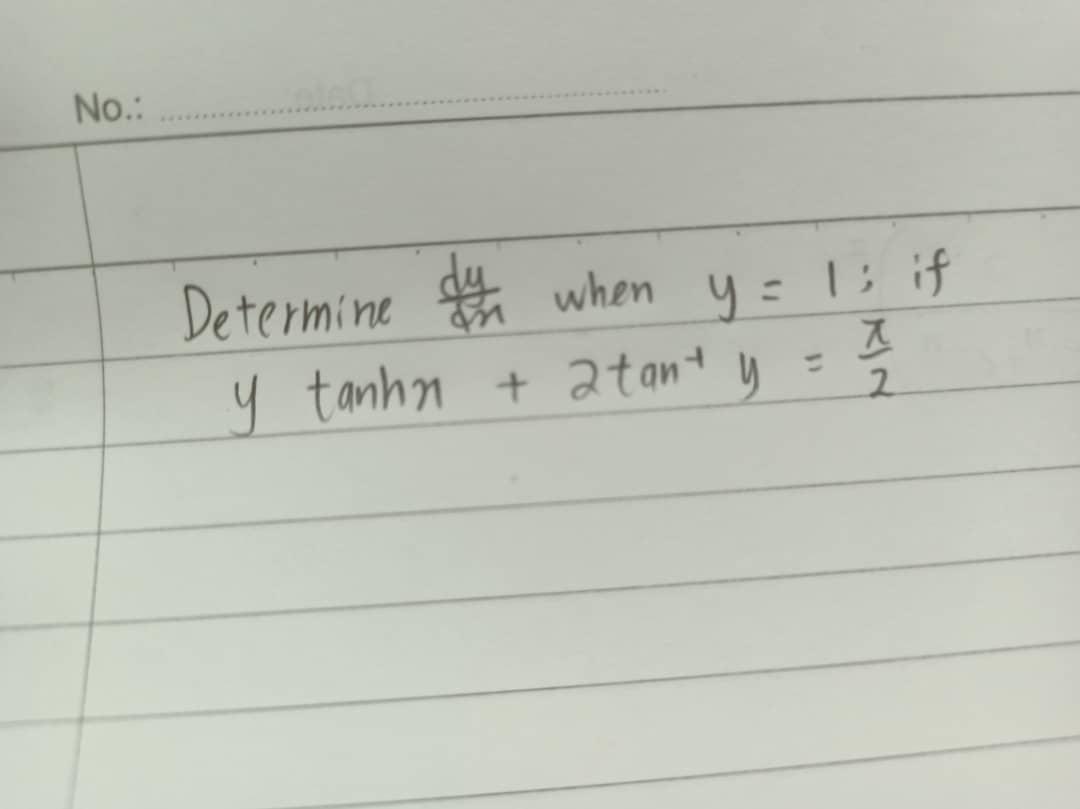 No.:
Determine dy/dx when y = 1; if
y tanhx + 2tan⁻¹ y = π/2